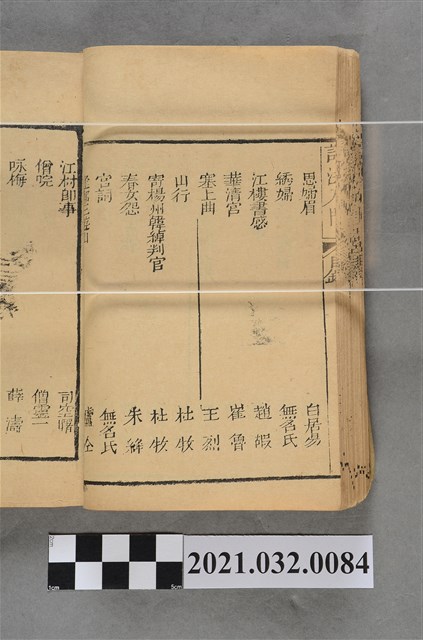 思婦眉 白居易
綉婦 無名氏
江樓書感 趙嘏
華清宮 崔魯
塞上曲 王烈
山行 杜牧
寄楊州韓綽判官 杜牧
春女怨 朱絳
宮詞 無名氏
江村即事 司空曙
僧院 僧靈一
咏梅 薛濤
2cm
1cm
5cm
2021.032.0084